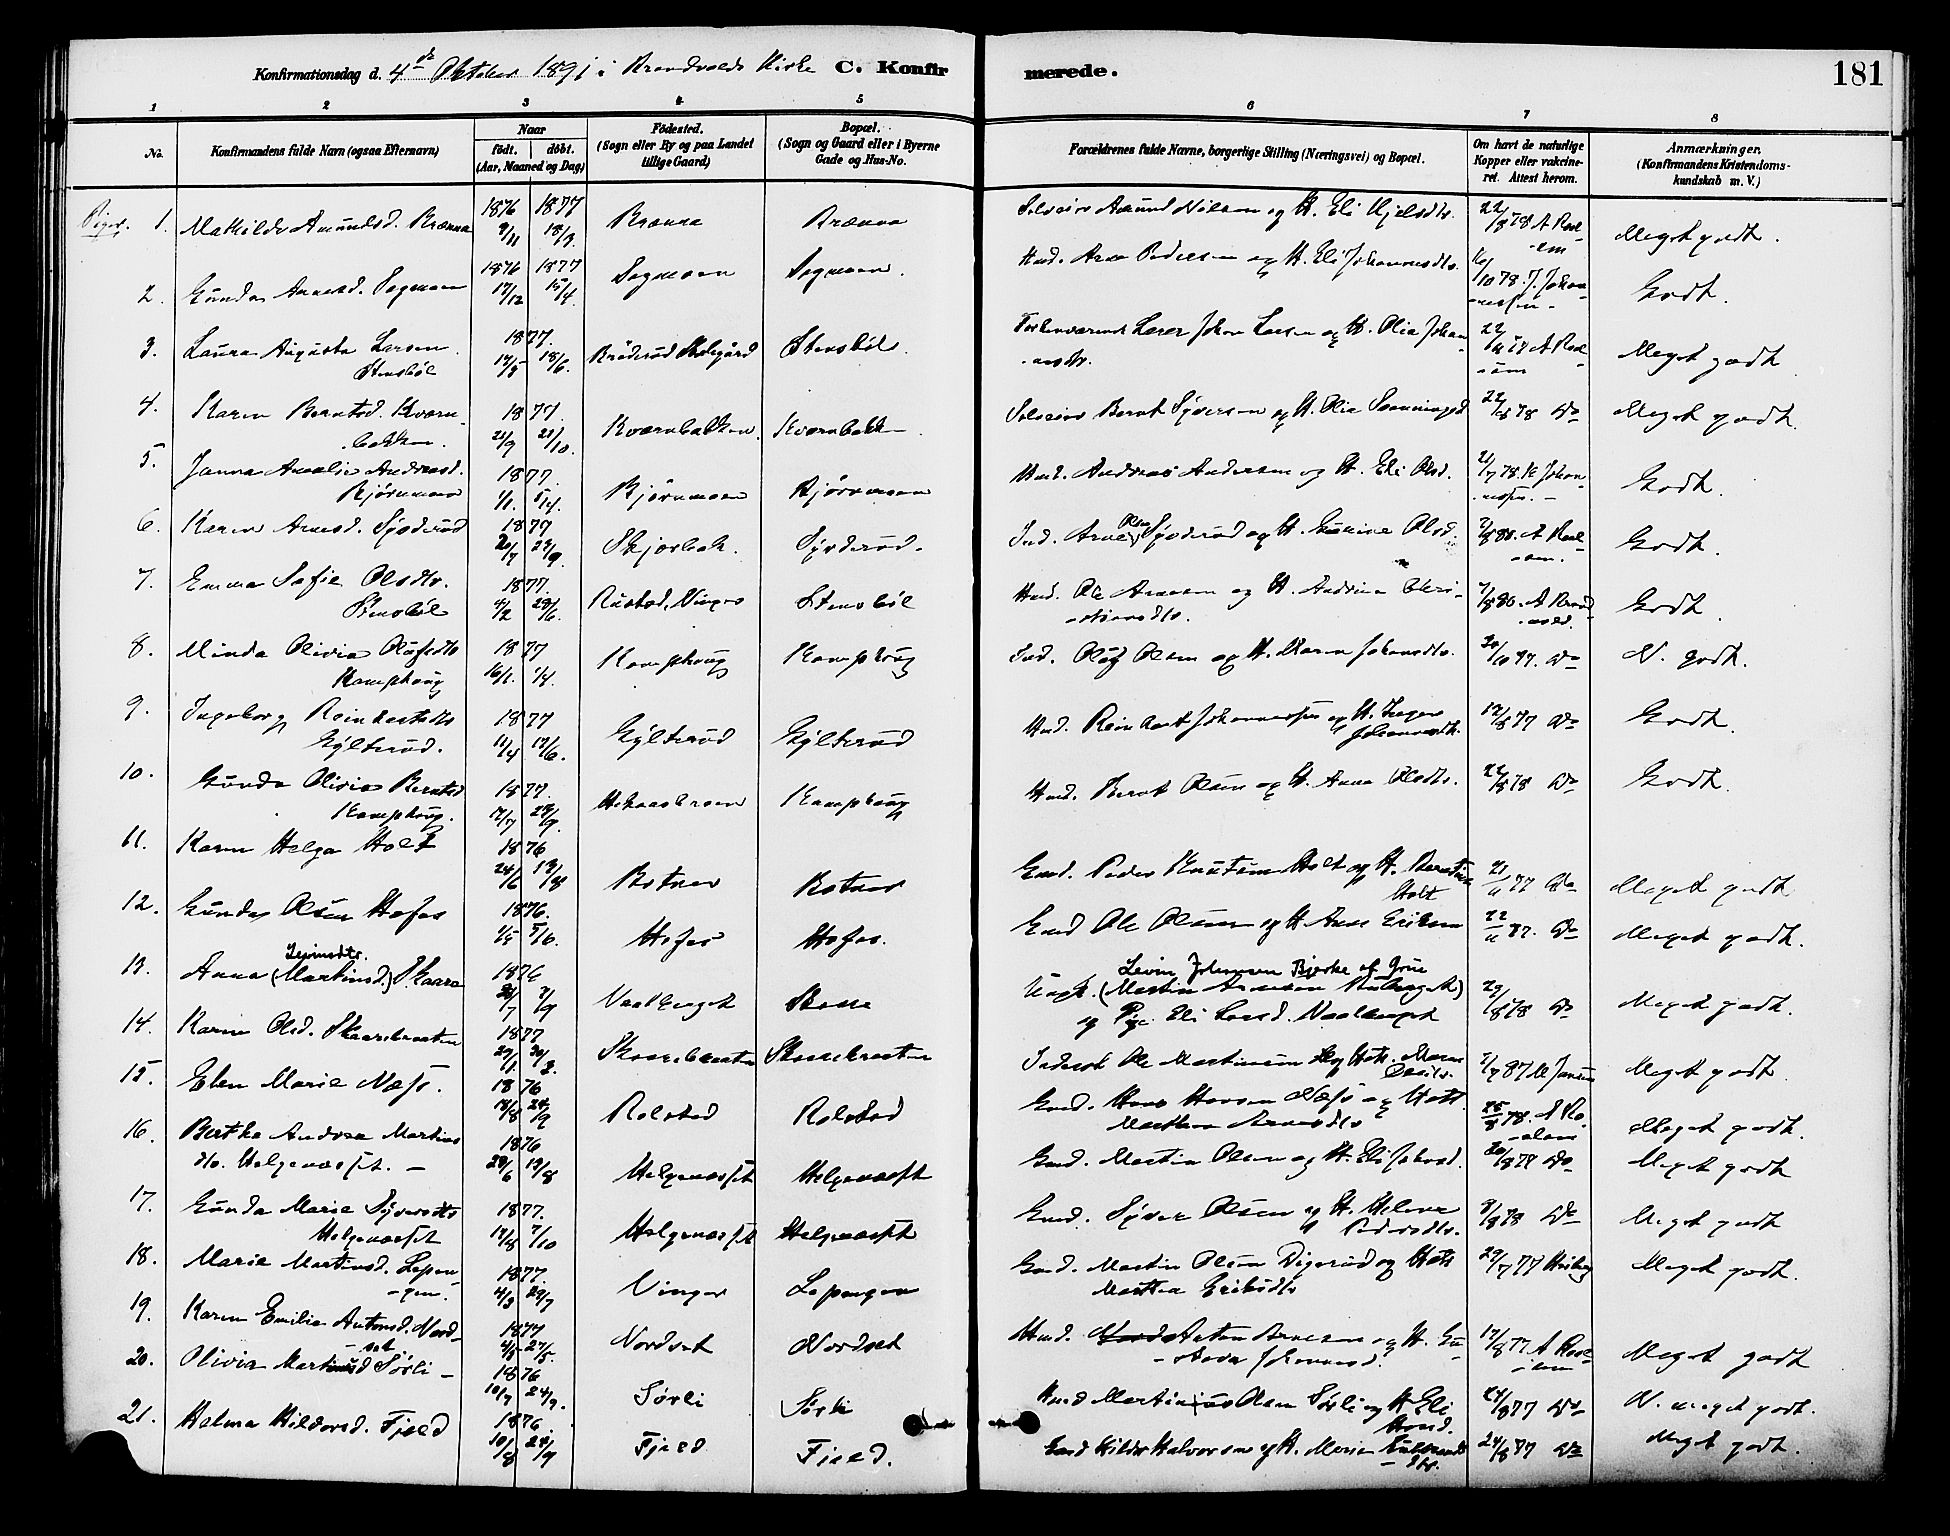 Konfirmationsdag d. 4de Oktober 1891 i Brandvolds Kirke C. Konfirmerede. 181
1 2 3 4 5 6 7 8
No. Konfirmandens fulde Navn (ogsaa Efternavn) Naar født. døbt. (Aar, Maaned og Dag) Fødested. (Sogn eller By og paa Landet tillige Gaard) Bopæl. (Sogn og Gaard eller i Byerne Gade og Hus-No. Forældrenes fulde Navne, borgerlige Stilling (Næringsvei) og Bopæl. Om havt de naturlige Kopper eller vaccineret. Attest herom. Anmærkninger. (Konfirmandens Kristendomskundskab m. V.)
Piger. 1. Mathilde Amundsd. Brænna 1876 9/11 1877 18/3 Brænna Brænna Selveier Amund Nilsen og H. Eli Kjelsdtr. 22/8 78 Meget godt.
2. Gunda Arnesd. Sagmoen 1876 17/12 1877 15/4 Sagmoen Sagmoen. Hmd. Arne Pedersen og H. Eli Johannesdtr. /10 78. J. Johannessen Godt.
3. Laura Augusta Larsen Stensbøl 1877. 18/6. Brøderud Skolegård Stensbøl. Forhenværende Lærer Johan Larsen og H. Olia Johannesdtr. Meget godt
4. Karen Berntsd. Kværnbakken. 1877. 21/9 21/10. Kværnbakken. Kværnbakken Selveier Bernt Syversen og H. Olia 22/8 78 Do Meget godt.
5. Janna Amalie Andreasd. Bjørnmoen 1877. 1/1. Bjørnmoen Bjørnmoen Hmd. Andreas Andersen og H. Eli Olsd. 21/7 78 K Johannessen. Godt.
6. Karen Arnesd. Syvderud 1877 20/7 23/9. Skjærbæk. Syvderud. Ind. Arne Olsen Syvderud og H. Olsd. Godt.
7. Emma Sofie Olsdtr. Stensbøl 1877. 4/2 Rustad, Vinger Stensbøl Hmd. Ole Arnesen og H. Andrina Christiansdtr. Godt.
8. Minda Olivia Olufsdtr Kamphaug 1877 16/1. 1/4. Kamphaug Kamphaug Ind. Oluf Olsen og H. Maren Johansdtr. 30/10 77. Do N. godt.
9. Ingeborg Reinhartsdtr Gylterud. 1877 11/4 17/6. Gylterud Gylterud Hmd. Reinhart Johannessen og H. Inger Johannesdtr. 12/8 77 Do Godt.
10. Gunda Olivia Berntsd Kamphaug. 1877. 17/7 23/9. Kamphaug Hmd. Bernt Olsen og H. Anna Olsdtr. 22/8 78 Do Godt.
11. Karen Helga Holt 1876 24/6 13/8 Botner Botner Gmd. Peder Knutsen Holt og H. Berntine Holt 21/11 77 Do Meget godt
12. Gunda Olsen Hofos 1876. 1/5 5/6. Hofos Hofos. Gmd Ole Olsen og H. Anne Eriksen 22/11 87. Do Meget godt.
13. Anna (Martinsd.) Levinsdtr. Skaara 1876 Vaalberget Skaara Ungk. (Martin Arnesen) Levin Johannsen Bjerke af Grue og Pige. Eli Larsd. Vaalberget 29/8 78 Do Meget godt.
14. Karen Olsd. Skaarebraaten 1877 29/1. Skaarebraaten Skaarebraaten Inderst Ole Martinsen og Hstr. Maren 87 M Jansen Meget godt.
15. Elen Marie Næss. 1876 18/8 24/9 Rolstad Rolstad Gmd. Hans Hansen Næss og Hstr. Marthea Arnesdtr 25/8 78. Meget godt.
16. Berthe Andrea Martinsdtr. Helgenæsset. 1876 28/6 13/8 Helgenæsset Helgenæsset Gmd. Martin Olsen og H. Eli Johnsd. 20/8 78 Do Meget godt
17. Gunda Marie Syversdtr Helgenæsset 1877. 17/8 7/10 Helgenæsset Helgenæsset Gmd. Syver Olsen og H. Helene Pedersdtr. 8/8 78 Do Meget godt
18. Marie Martinsd. Lepengen. 1877. 4/3 29/7 Vinger Lepengen Gmd. Martin Olsen Digerud og Hstr Marthea Eriksdtr 29/7 77 Meget godt.
19. Karen Emilie Antonsd. Nordset 1877 4/3 27/5. Nordset Nordset Hmd. Anton Arnesen og H. Gustava Johannesd. 17/8 77. Meget godt
20. Olivia Martinusd Sørli 1876 10/7 24/9. Sørli Sørli Hmd Martinius Olsen Sørli og H Eli 24/8 77 Do N. meget godt.
21. Halma Hildorsd. Fjeld 1876 10/8 24/9 Fjeld Fjeld. Gmd Hildor Halvorsen og H. Maria Gulbrandsdtr. 24/8 77 Do Meget godt.